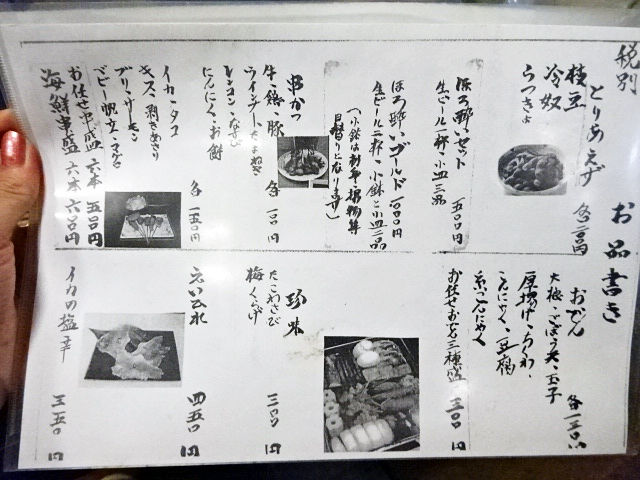 税別
お品書き
とりあえず
枝豆
冷奴
らっきょ
ほろ酔いセット
生ビール一杯・小皿二品
五〇〇円
ほろ酔いゴールド 一〇〇〇円
生ビール二杯・小鉢と小皿二品
串かつ
牛・鶏・豚
ウインナー・たまねぎ
各 一〇〇円
レンコン・なすび
にんにく・お餅
イカ・タコ
キス・剥きあさり
各 一五〇円
ブリ・サーモン
ベビー帆立・マグロ
お任せ串盛 六本 五五〇円
海鮮串盛 六本 六五〇円
おでん
大根・ごぼう天・玉子
厚揚げ・ちくわ・
こんにゃく・豆腐
糸こんにゃく
お任せおでん三種盛 三〇〇円
珍味
たこわさび
梅くらげ
三〇〇円
えいひれ 四五〇円
イカの塩辛 三五〇円